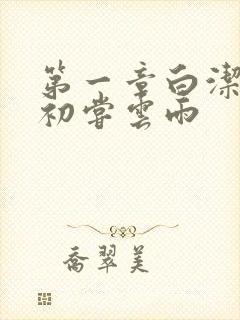 第一章白潔
初嘗雲雨
喬翠美